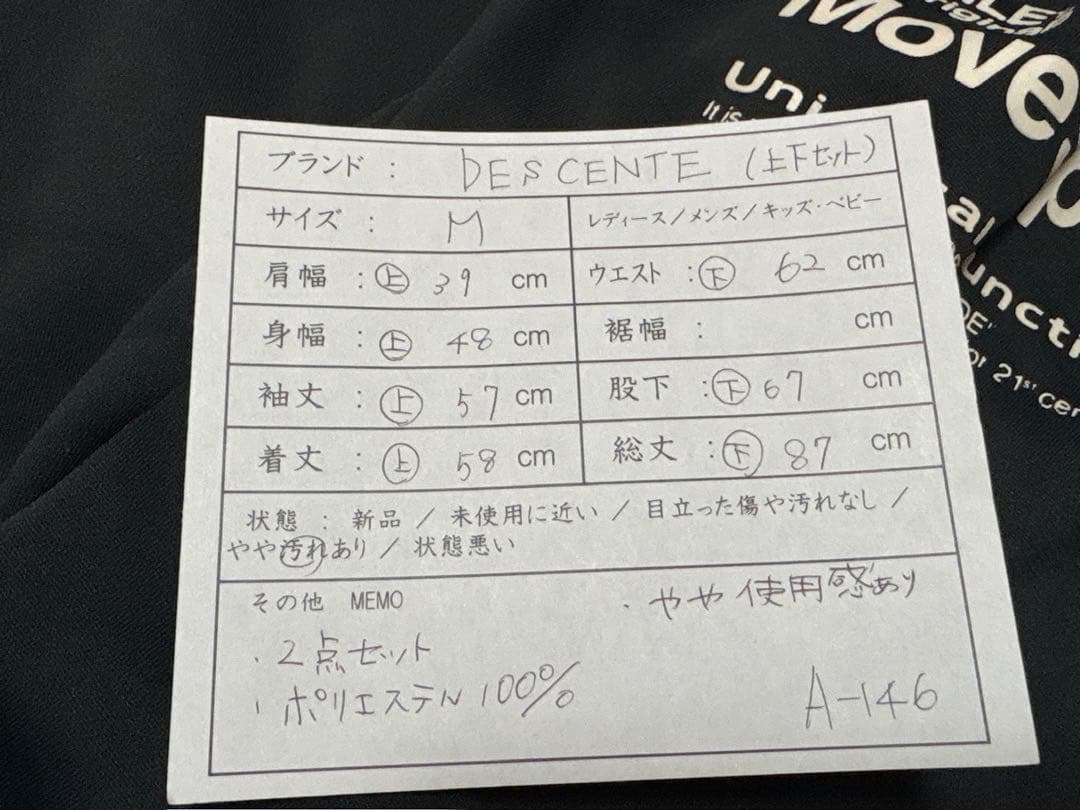 Move
Uni
It is
ブランド : DESCENTE (上下セット)
サイズ : M
レディース/メンズ/キッズ・ベビー
肩幅 : 上 39 cm
ウエスト : 下 62 cm
身幅 : 上 48 cm
裾幅 : cm
袖丈 : 上 57 cm
股下 : 下 67 cm
着丈 : 上 58 cm
総丈 : 下 87 cm
状態 : 新品 / 未使用に近い / 目立った傷や汚れなし /
やや汚れあり / 状態悪い
その他 MEMO
・やや使用感あり
・2点セット
・ポリエステル100%
A-146
21st cen